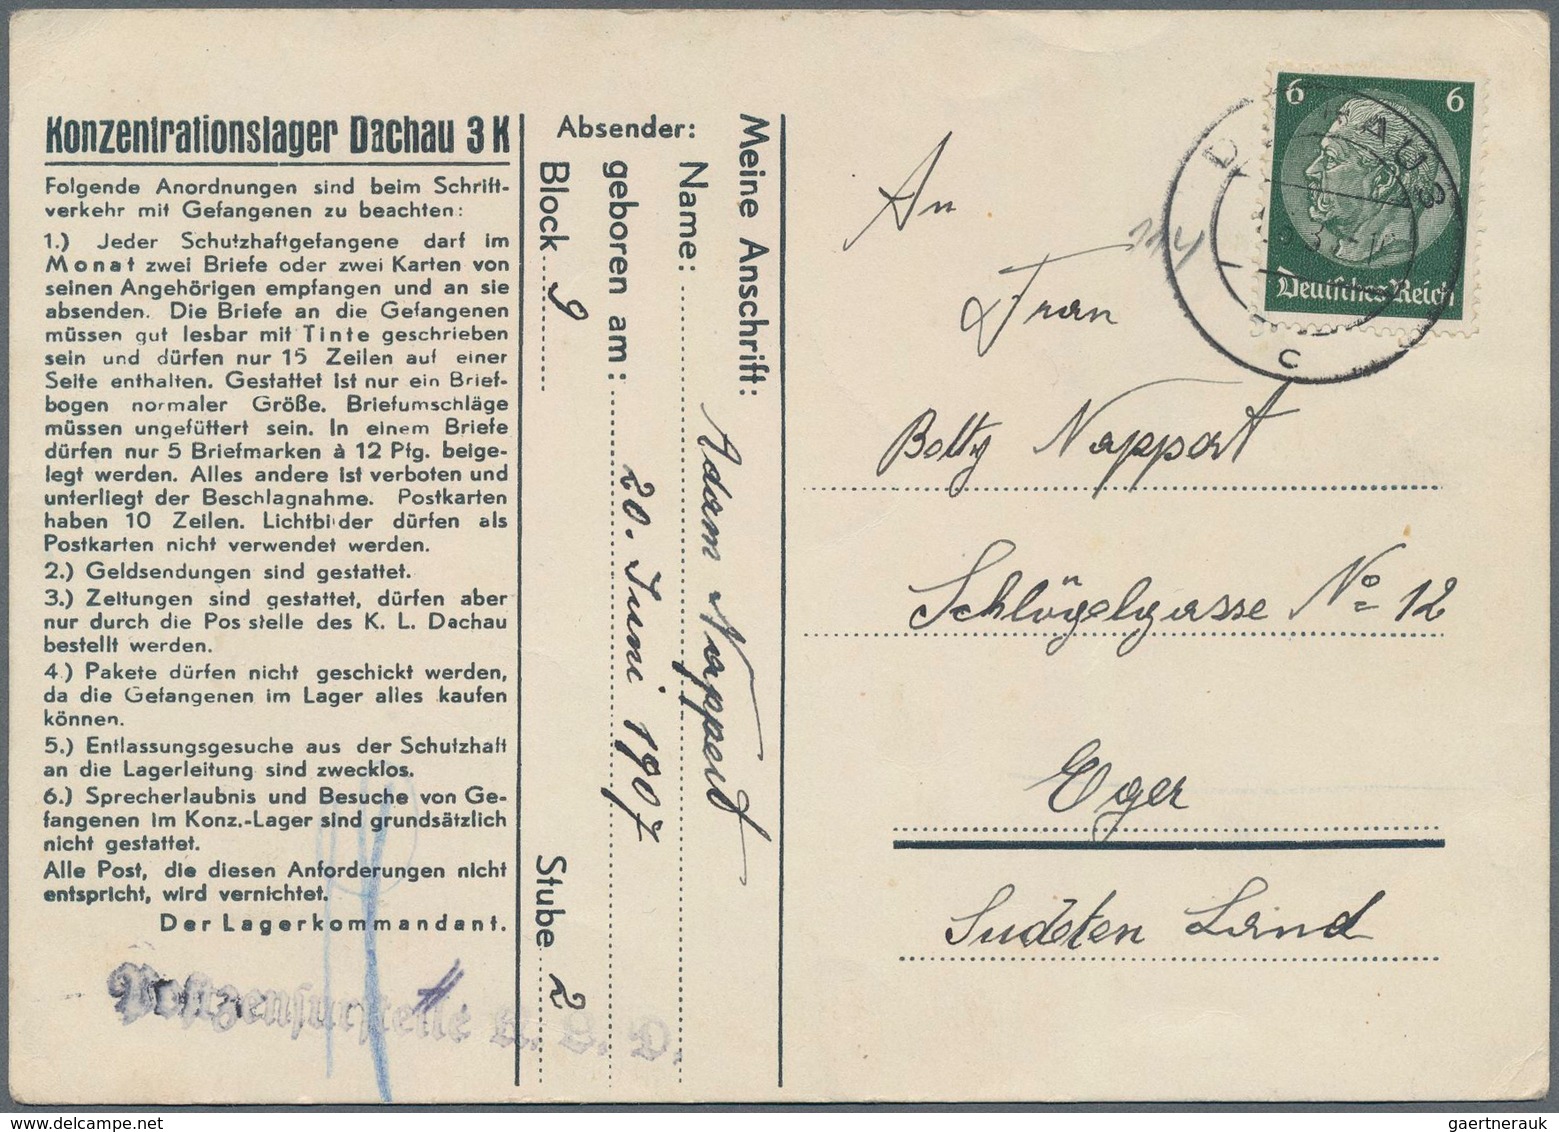 Konzentrationslager Dachau 3 K
Folgende Anordnungen sind beim Schrift-
verkehr mit Gefangenen zu beachten:
1.) Jeder Schutzhaftgefangene darf im
Monat zwei Briefe oder zwei Karten von
seinen Angehörigen empfangen und an sie
absenden. Die Briefe an die Gefangenen
müssen gut lesbar mit Tinte geschrieben
sein und dürfen nur 15 Zeilen auf einer
Seite enthalten. Gestattet ist nur ein Brief-
bogen normaler Größe. Briefumschläge
müssen ungefüttert sein. In einem Briefe
dürfen nur 5 Briefmarken à 12 Pfg. beige-
legt werden. Alles andere ist verboten und
unterliegt der Beschlagnahme. Postkarten
haben 10 Zeilen. Lichtbilder dürfen als
Postkarten nicht verwendet werden.
2.) Geldsendungen sind gestattet.
3.) Zeitungen sind gestattet, dürfen aber
nur durch die Pos stelle des K. L. Dachau
bestellt werden.
4.) Pakete dürfen nicht geschickt werden,
da die Gefangenen im Lager alles kaufen
können.
5.) Entlassungsgesuche aus der Schutzhaft
an die Lagerleitung sind zwecklos.
6.) Sprecherlaubnis und Besuche von Ge-
fangenen im Konz.-Lager sind grundsätzlich
nicht gestattet.
Alle Post, die diesen Anforderungen nicht
entspricht, wird vernichtet.
Der Lagerkommandant.
Postzensurstelle K. L. D.
Absender:
Meine Anschrift:
Name: Adam Nappert
geboren am: 20. Juni 1907
Block 9 Stube 2
6 6
Deutsches Reich
C
An
Frau
Betty Nappert
Schlögelgasse No 12
Eger
Sudeten Land
gaertnerauk